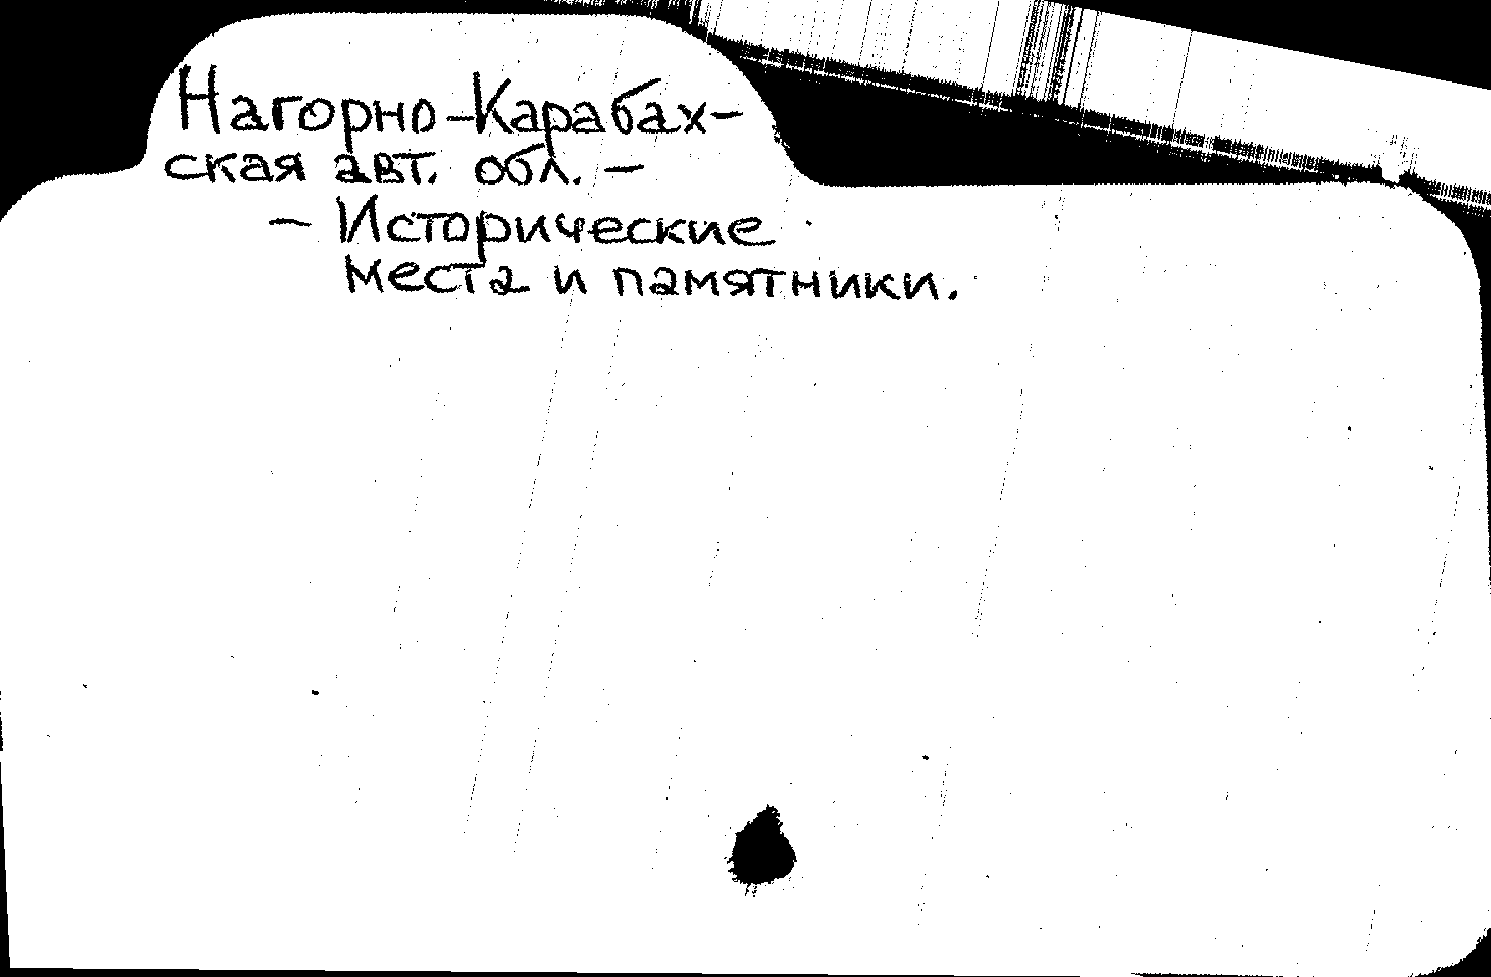 Нагорно-Карабах-
ская авт. обл. —
— Исторические
места и памятники.